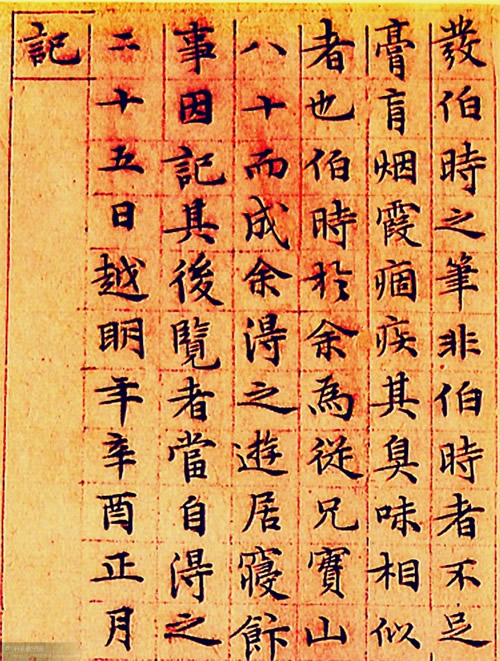 發伯時之筆非伯時者不足
膏肓烟霞痼疾其臭味相似
者也伯時扵余為從兄寶山
八十而成余淂之遊居寢飰
事因記其後覽者當自淂之
二十五日越明年辛酉正月
記